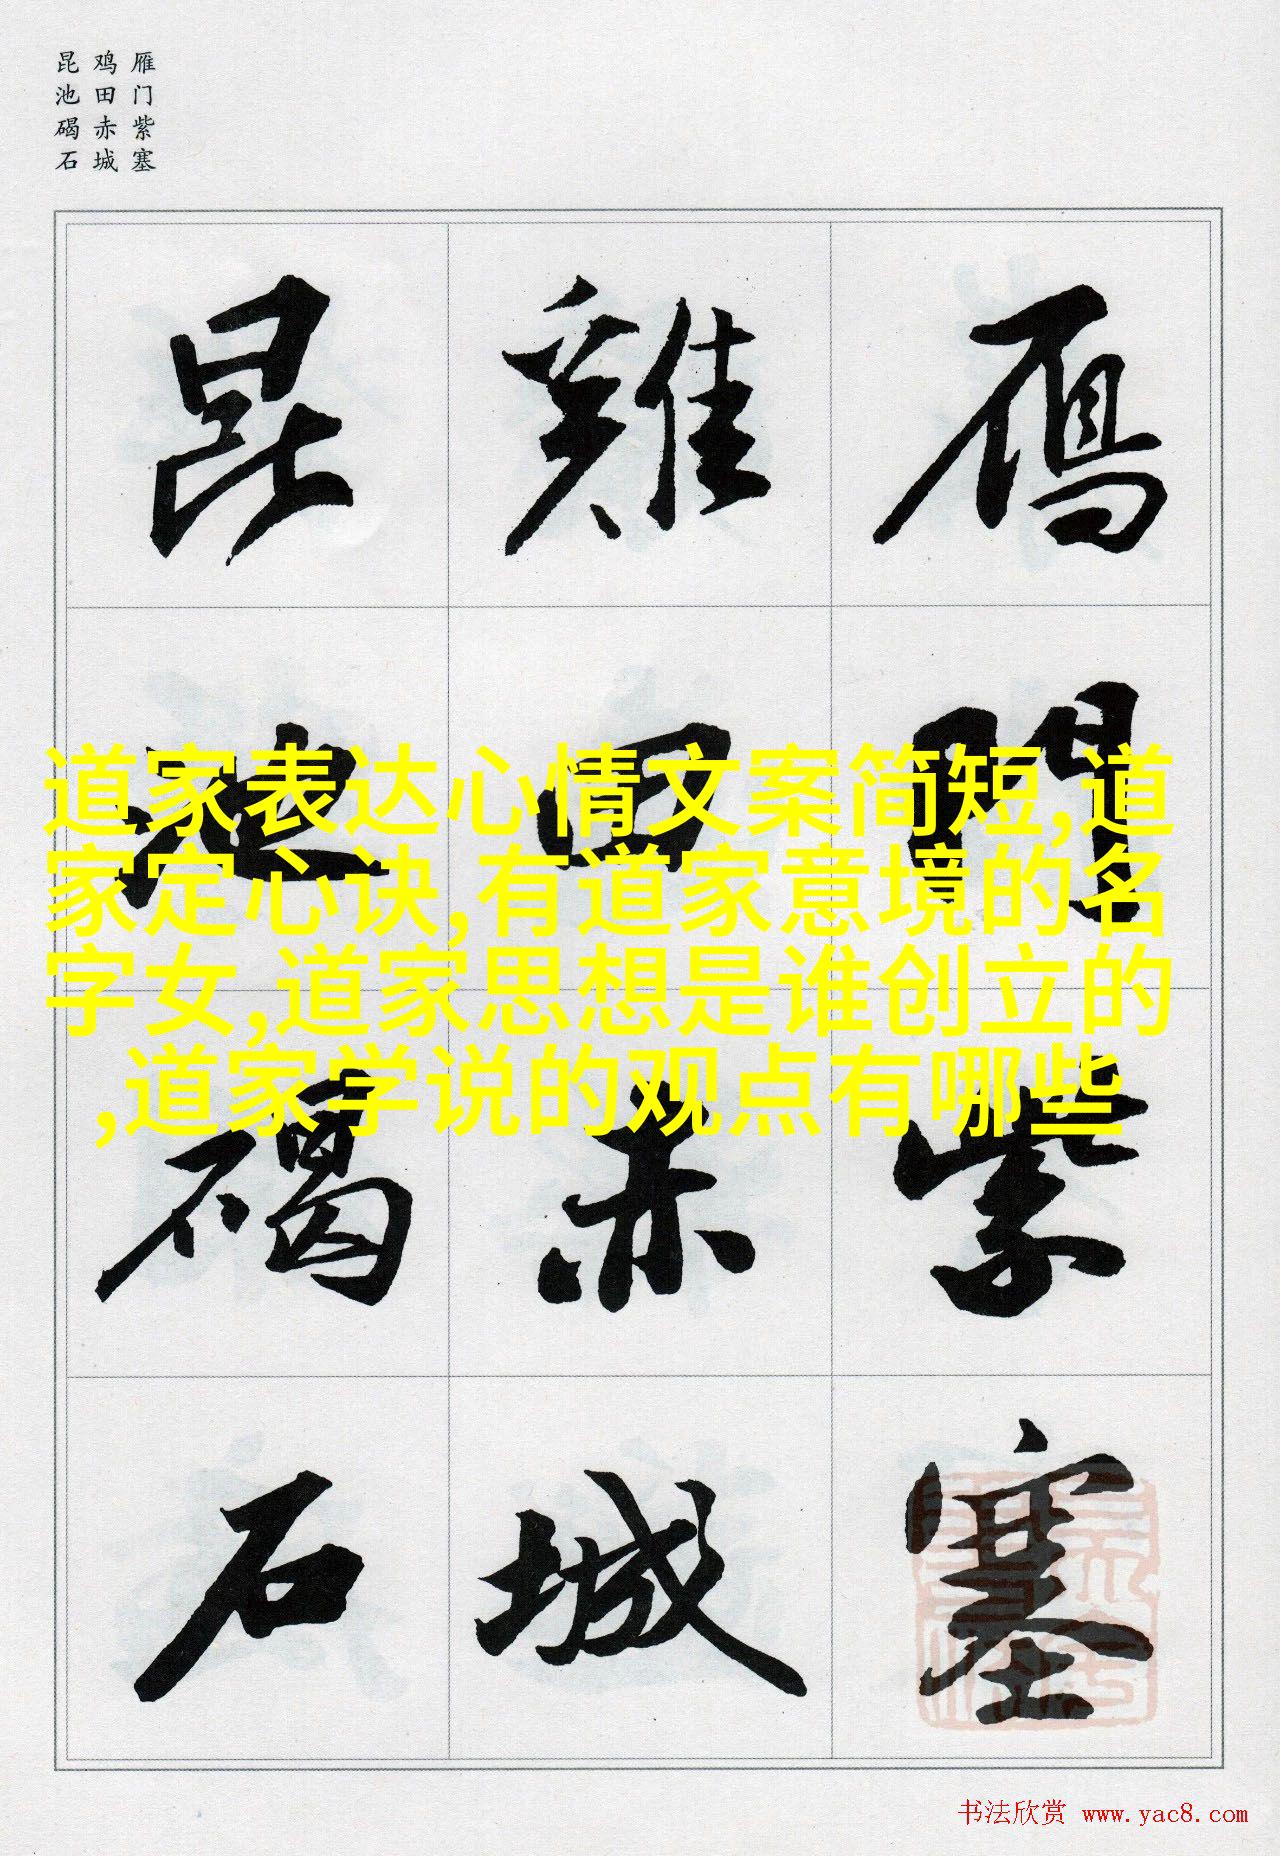 雁门紫塞
鸡田赤城
昆池碣石
雁門紫塞
雞田赤城
昆池碣石
道家表达心情文案简短,道
家定心诀,有道家意境的名
字女,道家思想是谁创立的
,道家学说的观点有哪些
书法欣赏 www.yac8.com